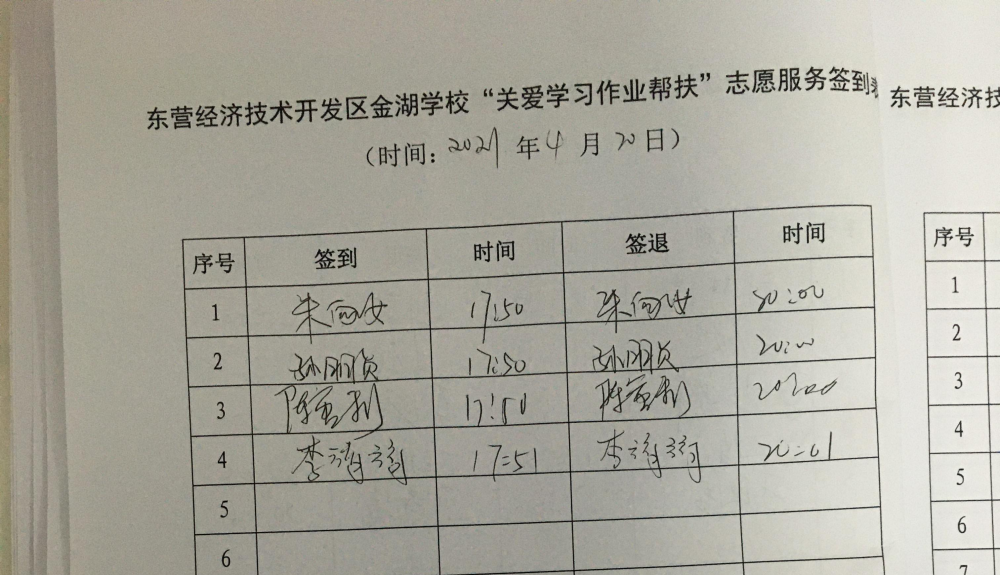 东营经济技术开发区金湖学校“关爱学习作业帮扶”志愿服务签到表
（时间：2021年4月20日）
序号 签到 时间 签退 时间
1 朱向女 17:50 朱向女 20:00
2 孙朋贞 17:50 孙朋贞 20:00
3 陈 利 17:50 陈 利 20:00
4 李 17:51 李 20:01
5
6
东营经济技
序号
1
2
3
4
5
6
7